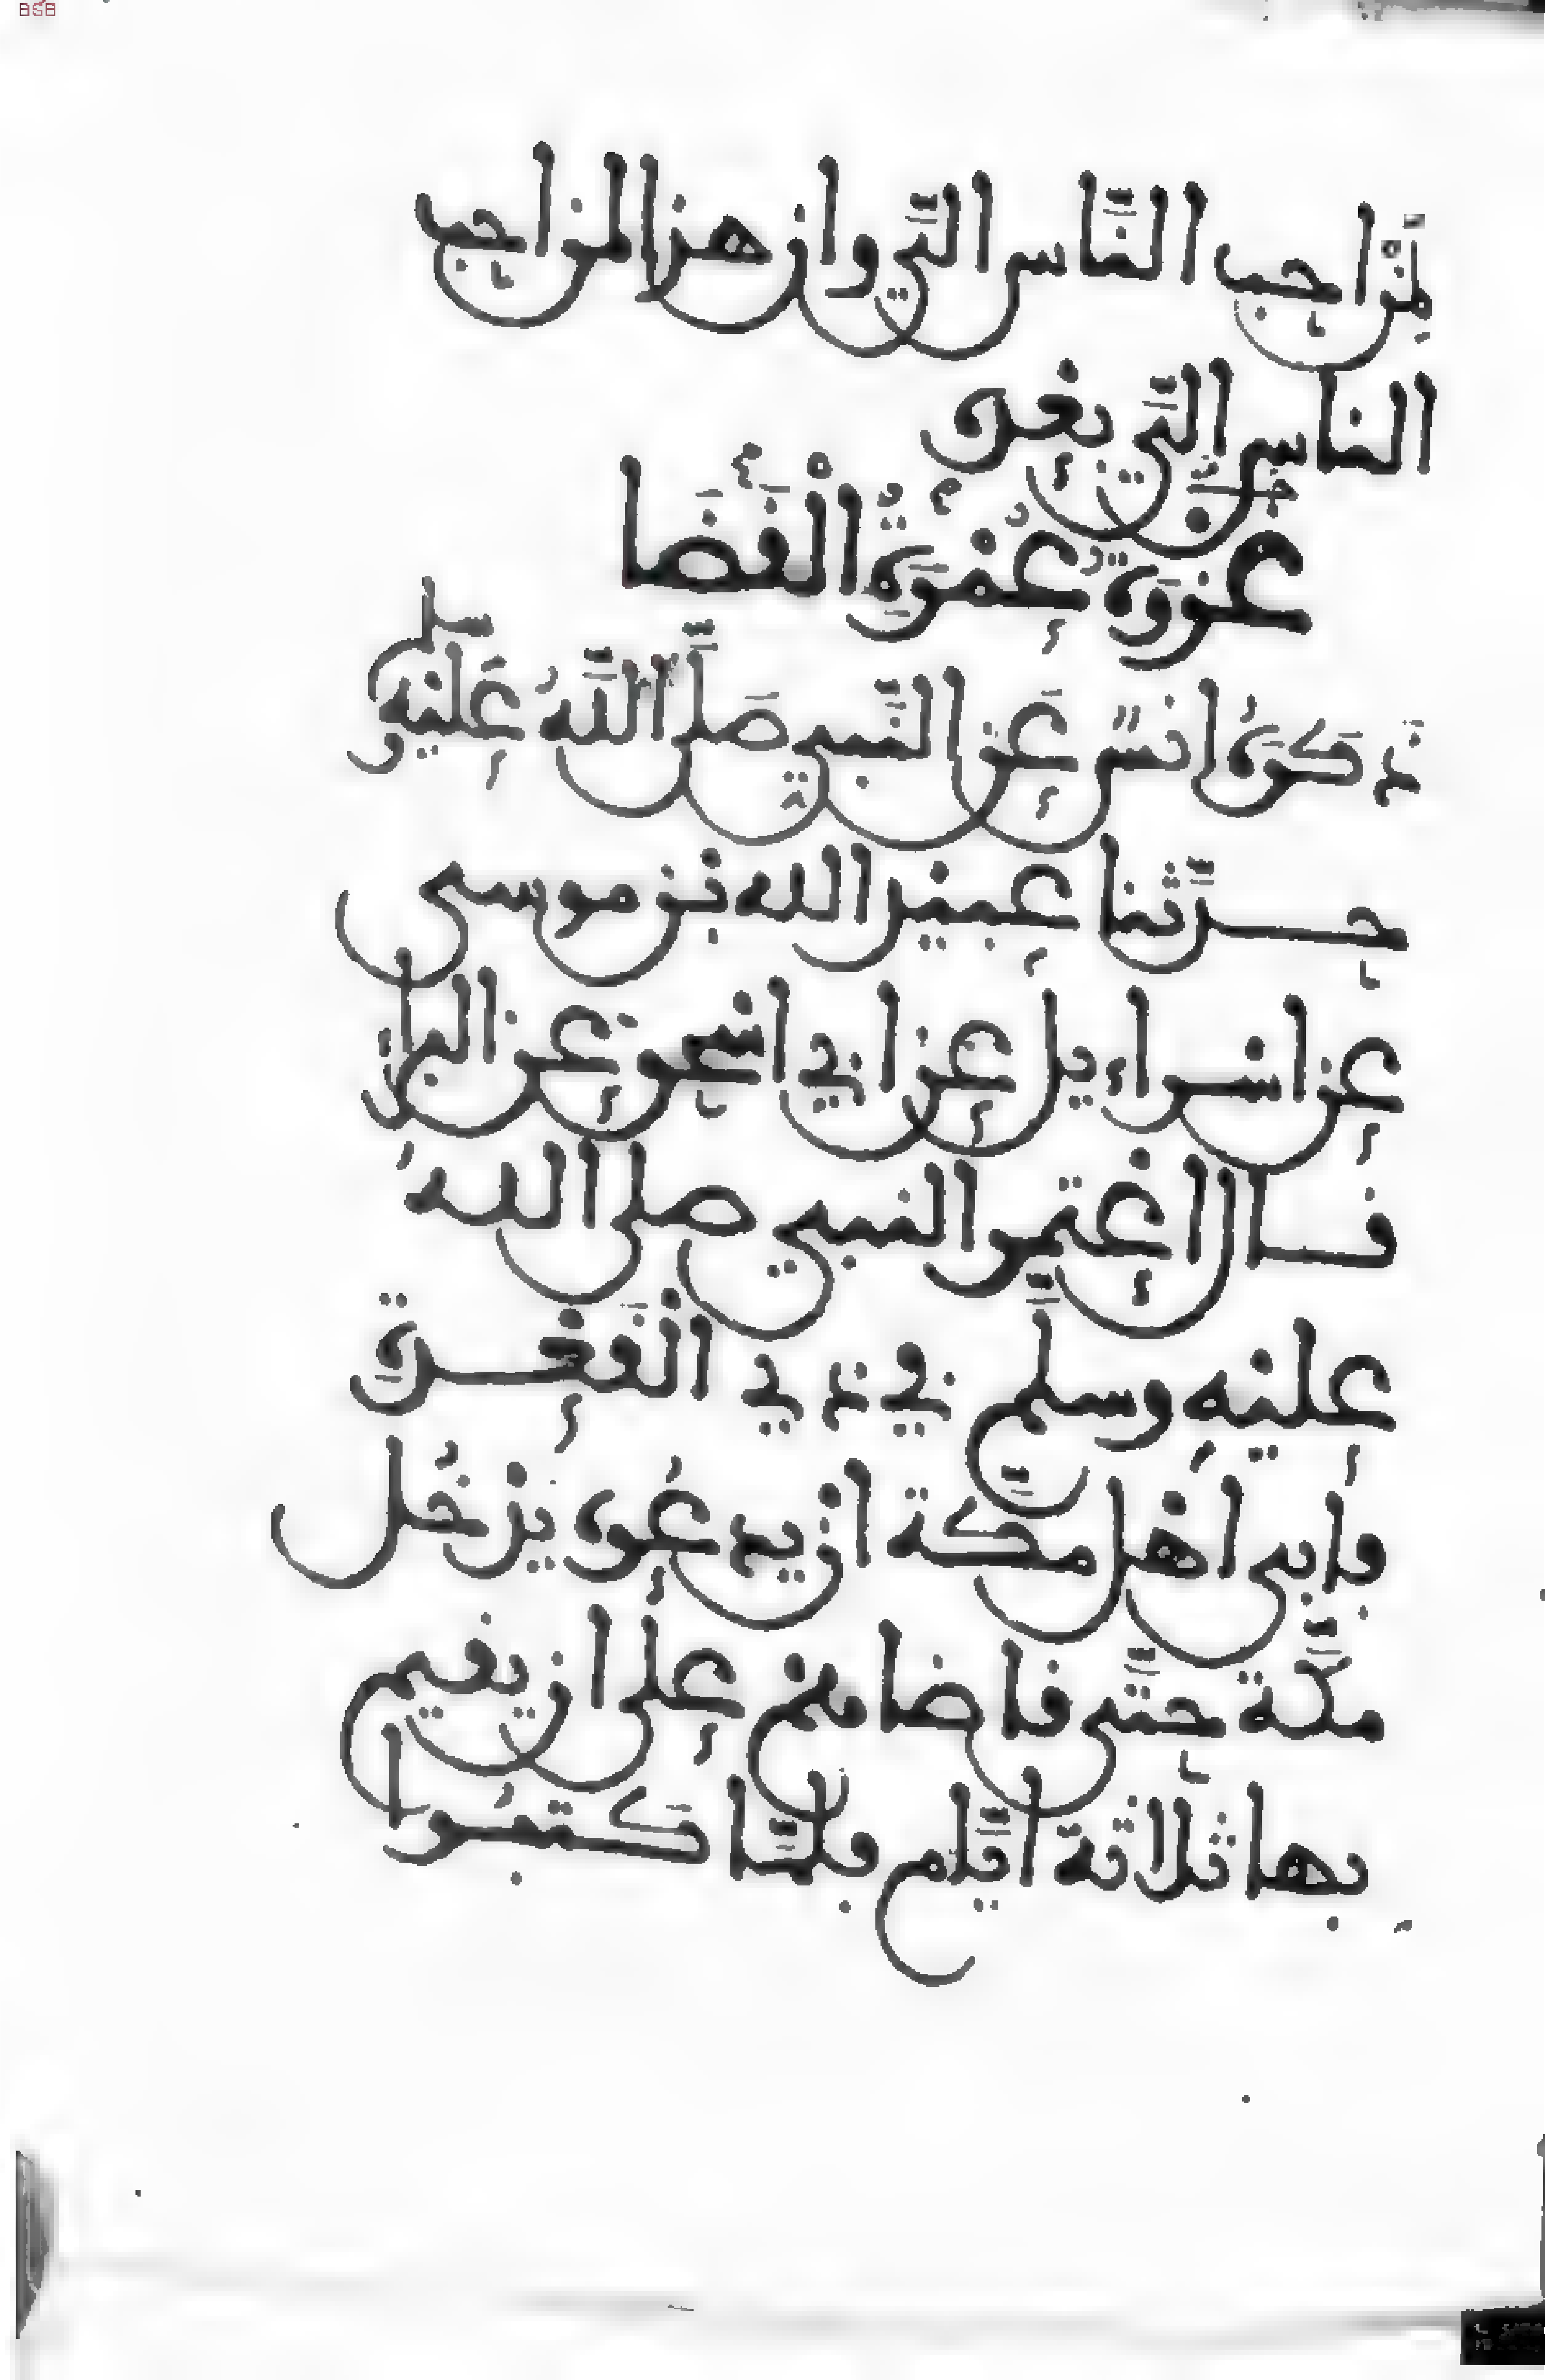 BSB
لَمِنْ احب النَّاس اليَّ وان هذا لمن احب
الناس اليَّ بعده
غزوةُ عُمْرَةِ الْقَضَا
ذكرهُ انسٌ عن النَّبي صَلَّى اللَّهُ عَلَيْهِ وسلم
حدَّثنا عبيد الله بن موسى
عن اسراءيل عن ابي اسحق عن البرا
قال اعتمر النبي صلى اللهُ
عليْهِ وسلَّم في ذي الْقَعْدة
فابى اهل مكة ان يدعُوه يدْخُل
مكَّة حتَّى قاضاهم على ان يقيم
بها ثلاثة ايَّام فلمَّا كَتبُوا